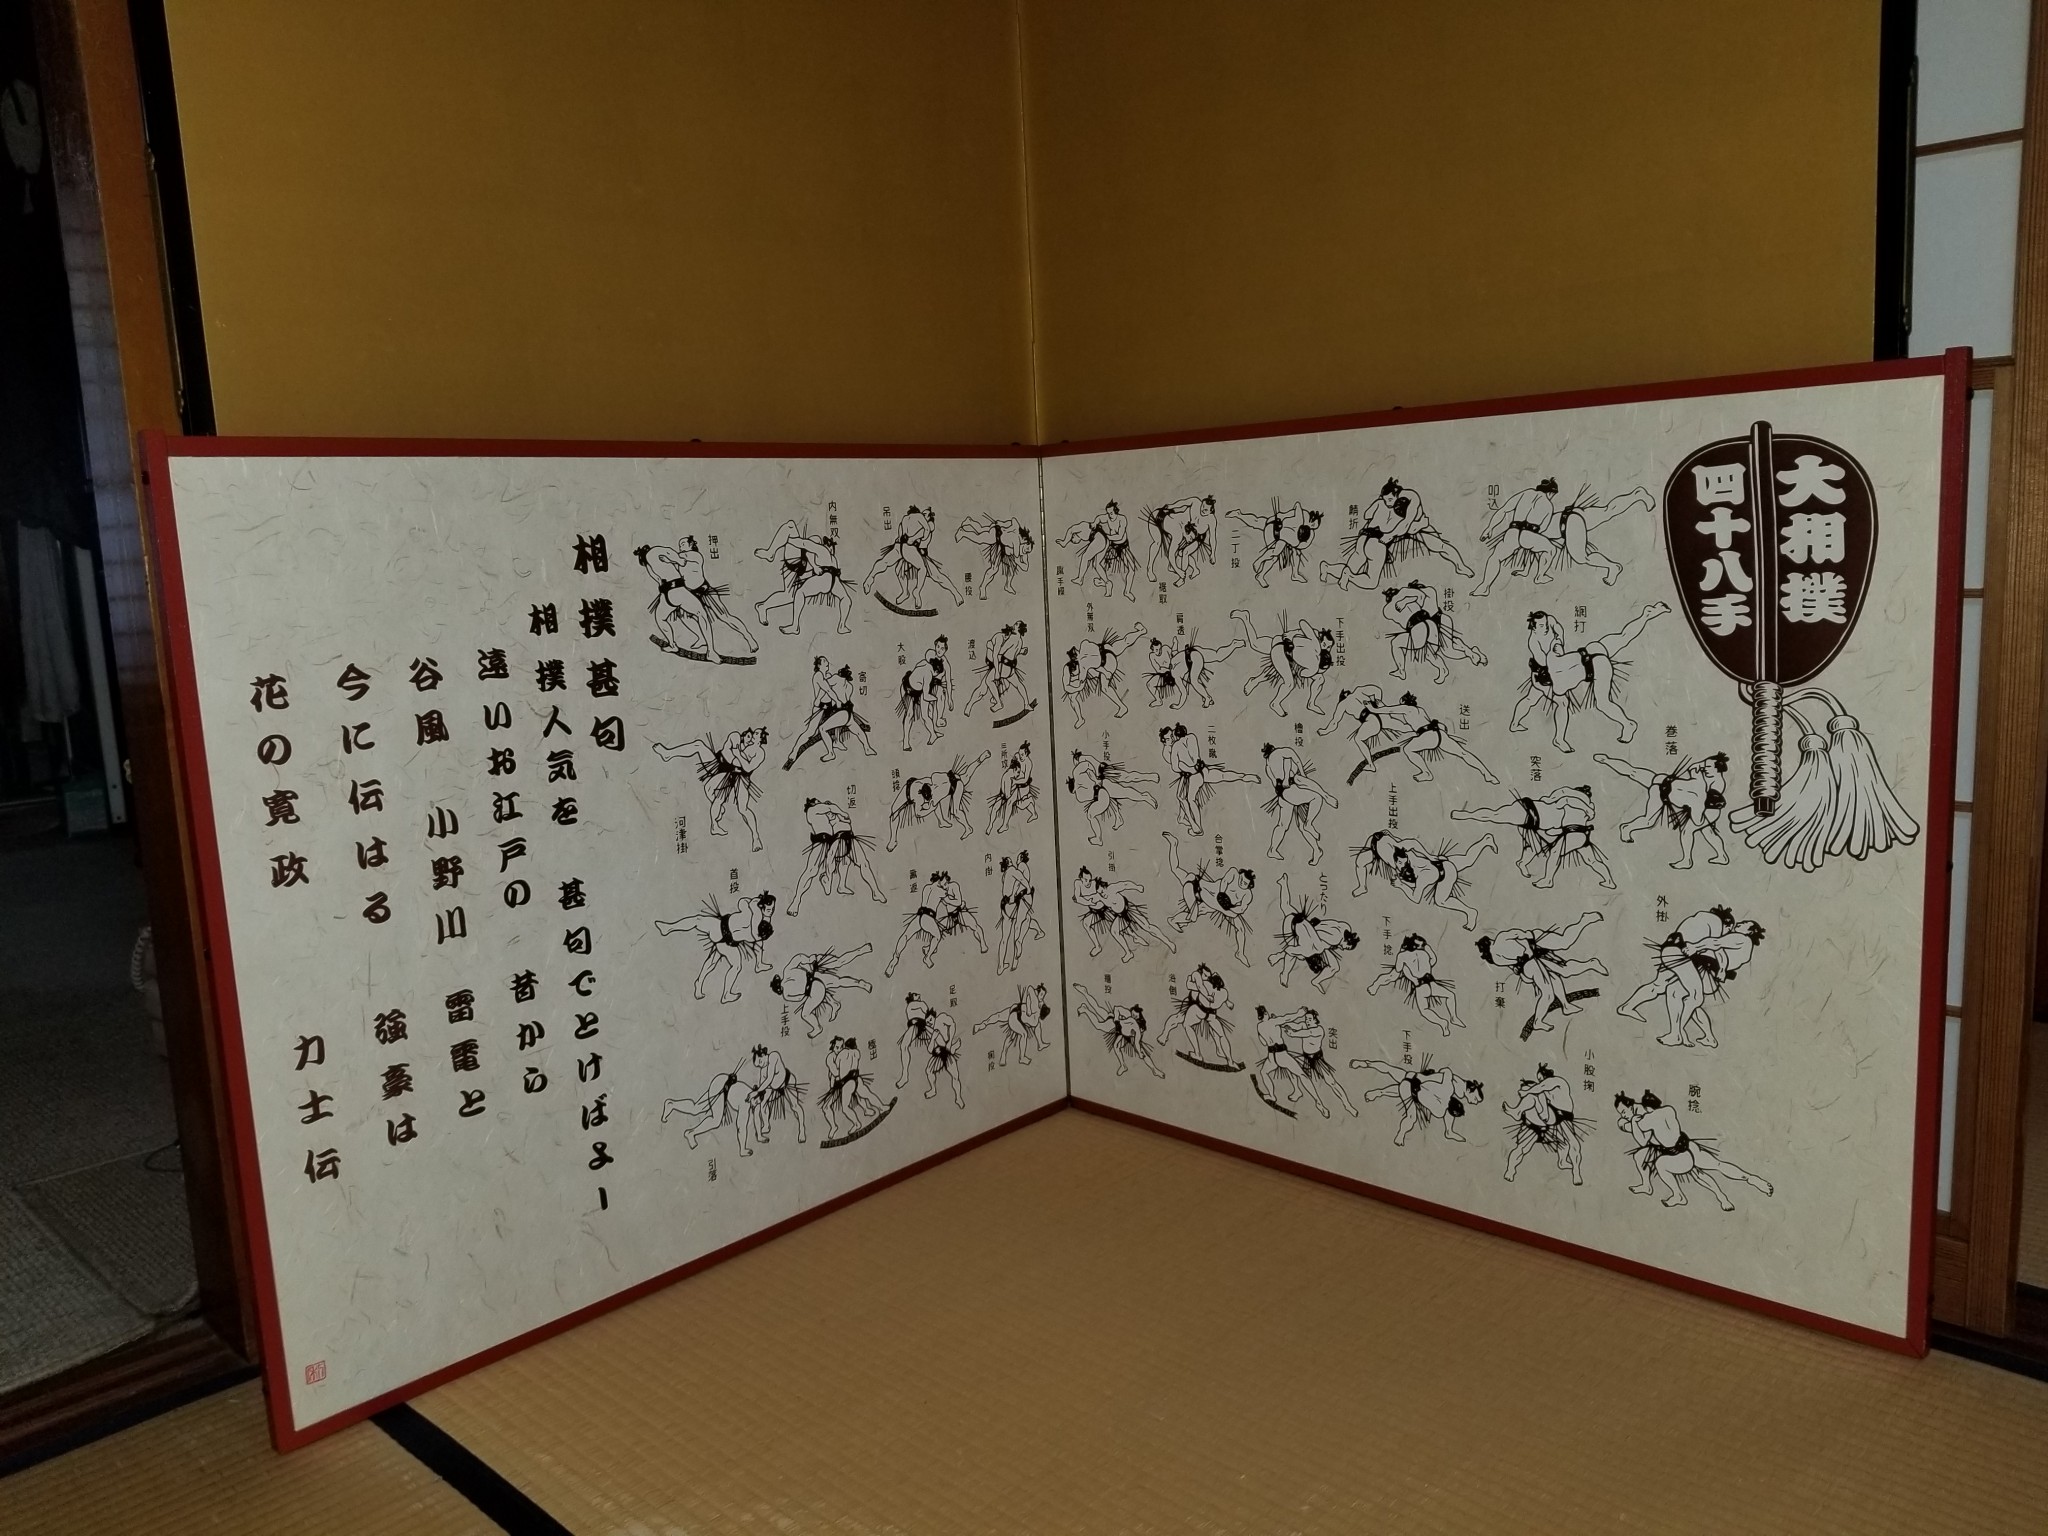 大相撲
四十八手
叩込
網打
巻落
外掛
腕捻
鯖折
掛投
送出
突落
打棄
小股掬
二丁投
下手出投
上手出投
下手捻
下手投
裾取
肩透
二枚蹴
櫓投
とったり
合掌捻
突出
外無双
小手投
引掛
腰投
渡込
内掛
吊出
大股
頭捻
足取
内無双
寄切
切返
上手投
押出
河津掛
首投
引落
相撲甚句
相撲人気を 甚句でとけばよー
遠いお江戸の 昔から
谷風 小野川 雷電と
今に伝はる 強豪は
花の寛政 力士伝